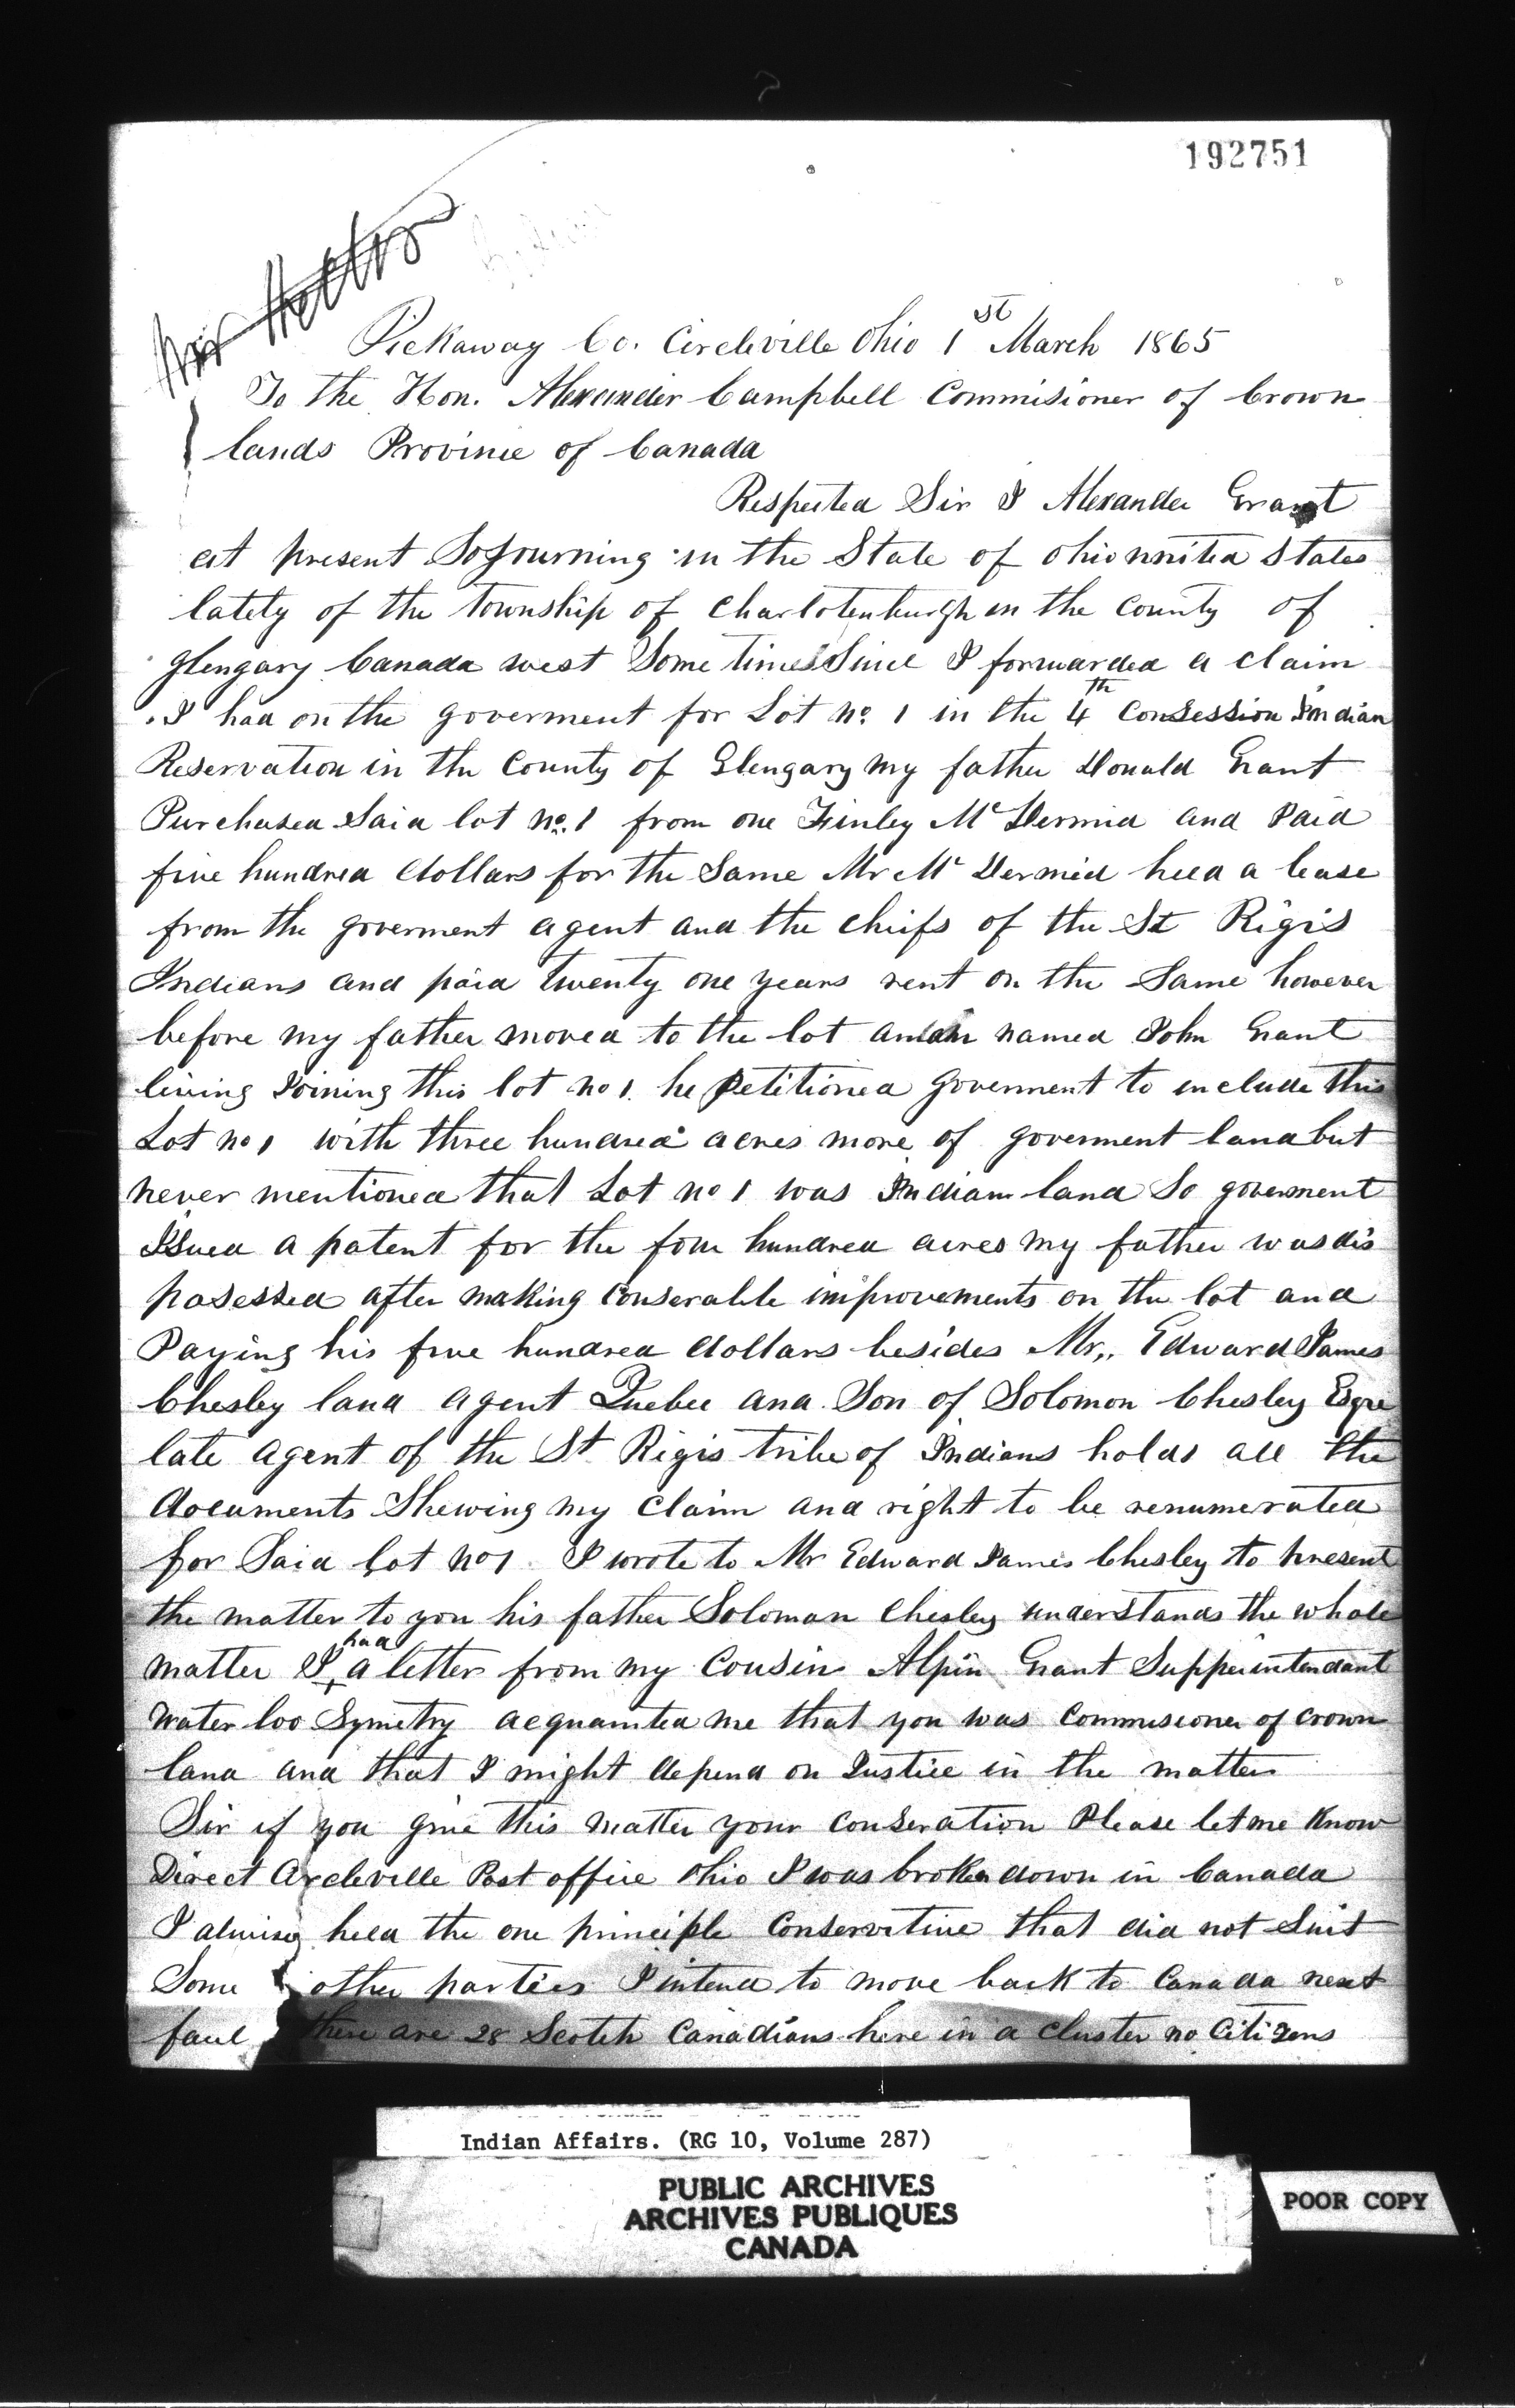 192751
Pickaway Co. Circleville Ohio 1st March 1865
To the Hon. Alexander Campbell Commisioner of Crown
lands Province of Canada
Respected Sir I Alexander Grant
at present Sojourning in the State of Ohio united States
lately of the township of Charlotenburgh in the County of
Glengary Canada west Some time Since I forwarded a claim
I had on the goverment for Lot no. 1 in the 4th Consession Indian
Reservation in the County of Glengary my father Donald Grant
Purchased Said lot no. 1 from one Finley McDermid and Paid
five hundred dollars for the Same Mr McDermid held a lease
from the goverment agent and the chiefs of the St Rigis
Indians and paid twenty one years rent on the Same however
before my father moved to the lot named John Grant
living Joining this lot no 1. he Petitioned goverment to include this
Lot no 1 with three hundred acres more of goverment land but
never mentioned that Lot no 1 was Indian land So goverment
Isued a patent for the four hundred acres my father was dis
posessed after making Conserable improvements on the lot and
Paying his five hundred dollars besides Mr,, Edward James
Chesley land agent Quebec and Son of Solomon Chesley Esqre
late agent of the St Rigis tribe of Indians holds all the
documents Shewing my Claim and right to be renumerated
for Said lot no 1 I wrote to Mr Edward James Chesley to present
the matter to you his father Soloman Chesley understands the whole
matter I had a letter from my Cousin Alpin Grant Supperintendant
Water loo Symetry acquainted me that you was Commisioner of crown
land and that I might depend on Justice in the matter
Sir if you give this matter your Conseration Please let me Know
Direct Circleville Post office Ohio I was broken down in Canada
I held the one principle Conservitive that did not Suit
Some other parties I intend to move back to Canada next
faul there are 28 Scotch Canadians here in a cluster no Citizens
Indian Affairs. (RG 10, Volume 287)
PUBLIC ARCHIVES
ARCHIVES PUBLIQUES
CANADA
POOR COPY